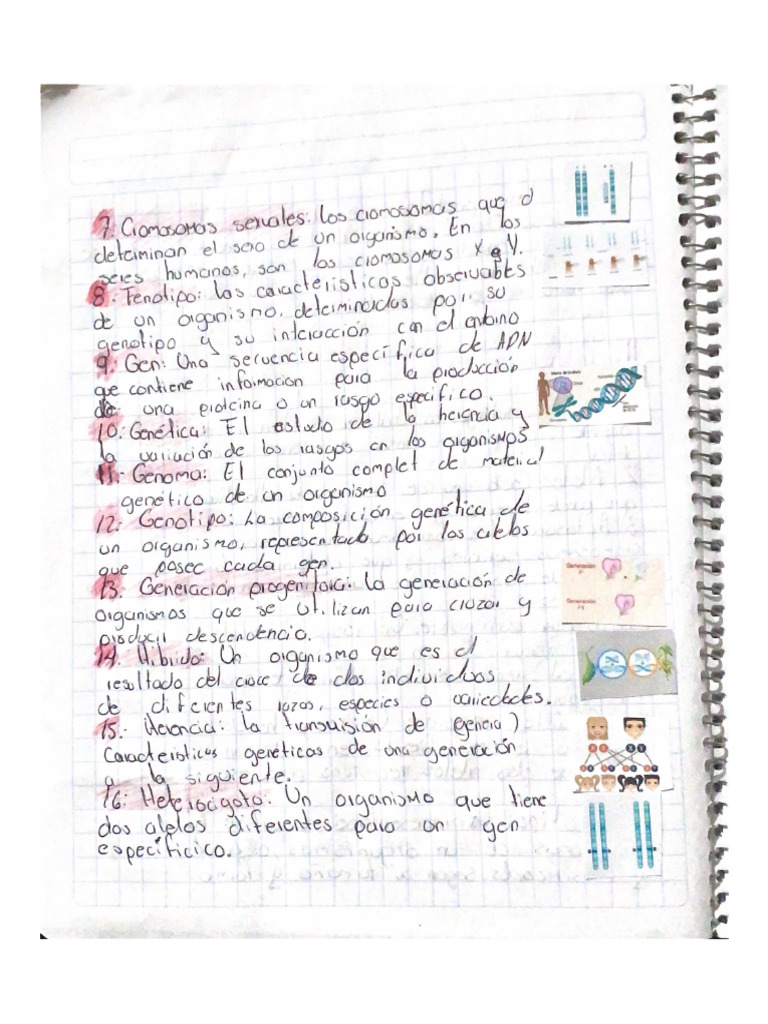 7. Cromosomas sexuales: los cromosomas que d
determinan el sexo de un organismo. En los
seres humanos, son los cromosomas X e Y.
8. Fenotipo: las características observables
de un organismo, determinadas por su
genotipo y su interacción con el entorno
9. Gen: Una secuencia específica de ADN
que contiene información para la producción
de una proteína o un rasgo específico.
10. Genética: El estudio de la herencia y
la variación de los rasgos en los organismos
11. Genoma: El conjunto complet de material
genético de un organismo
12. Genotipo: La composición genética de
un organismo, representada por los alelos
que posee cada gen.
13. Generación progenitora: la generación de
organismos que se utilizan para cruzar y
producir descendencia.
14. Hibrido: Un organismo que es el
resultado del cruce de dos individuos
de diferentes razas, especies o variedades.
15.- Herencia: la transmisión de genera)
Características genéticas de una generación
a la siguiente.
16. Heterocigoto: Un organismo que tiene
dos alelos diferentes para un gen
especificico.
Generación
P
Generación
F1